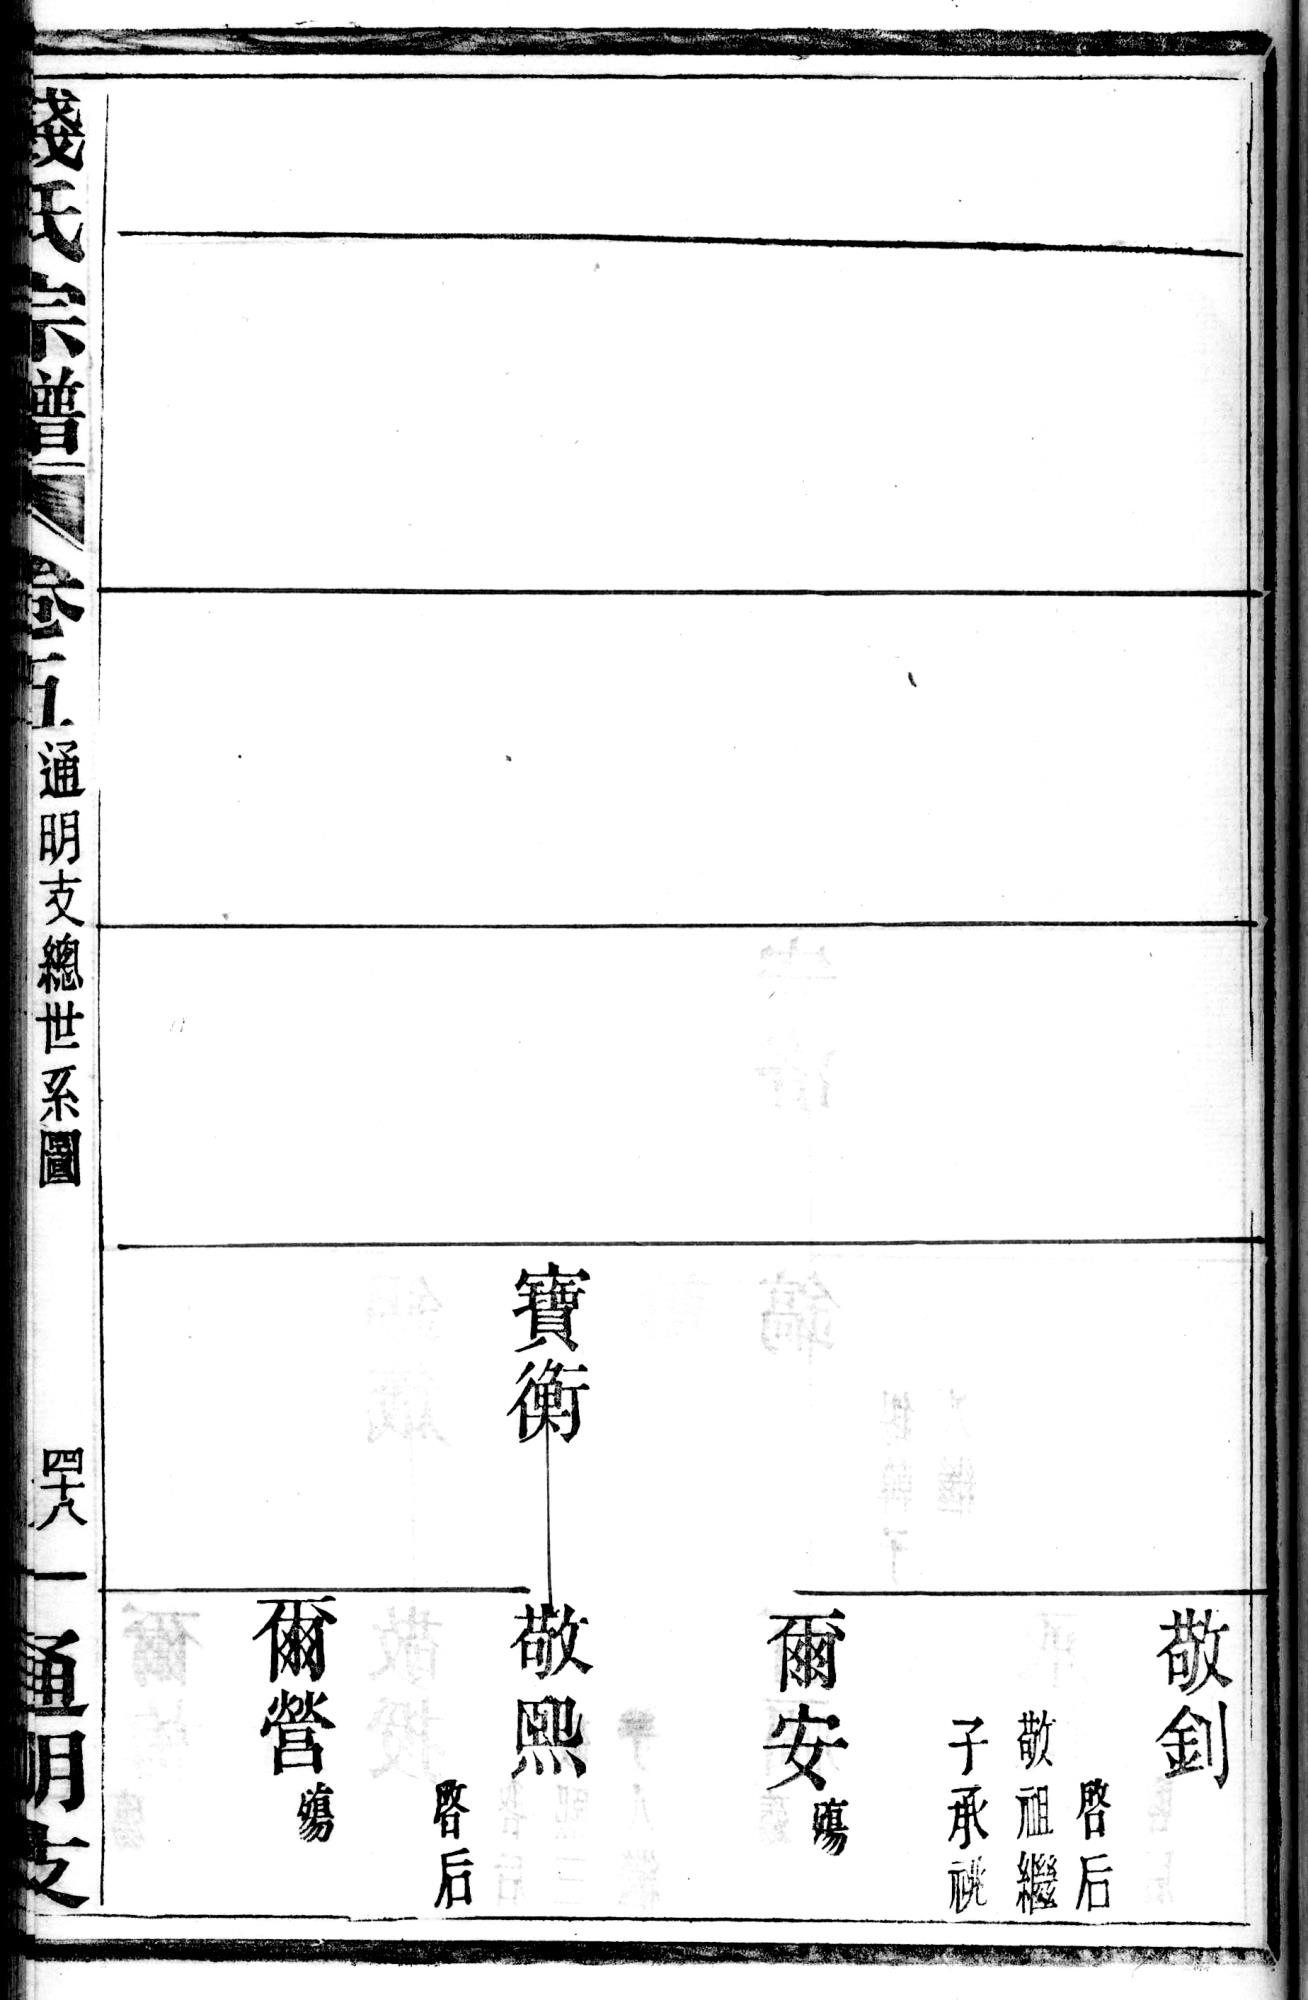 敬釗
啓后
敬祖繼
子承祧
爾安
殤
寶衡
敬熙
啓后
爾營
殤
錢氏宗譜
卷五
通明支總世系圖
四十八
通明支